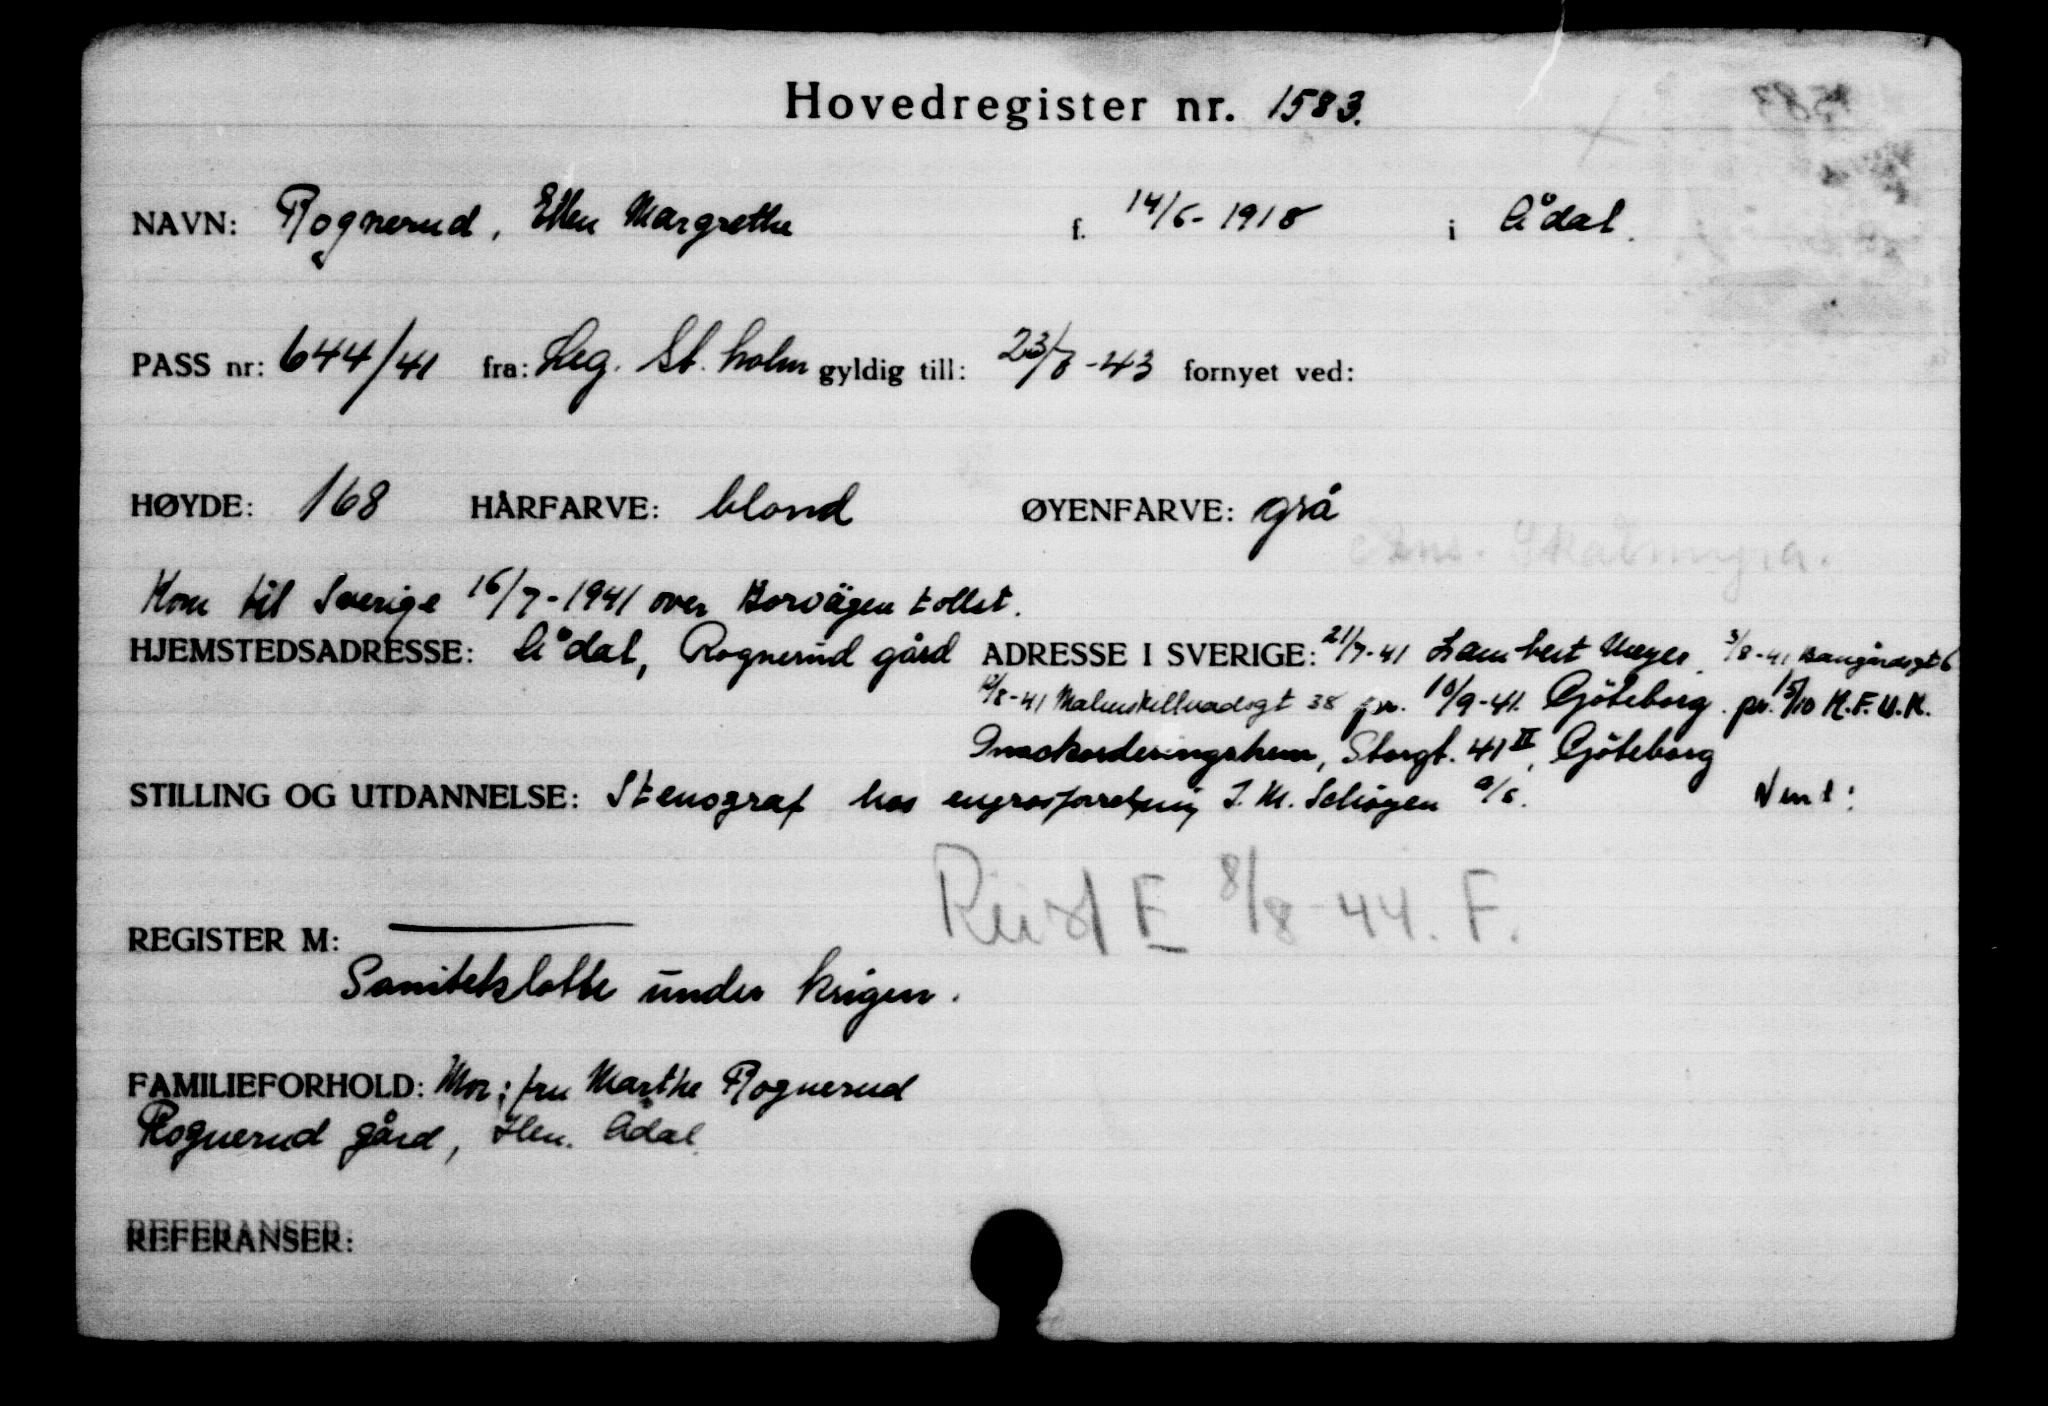 Hovedregister nr. 1583.
NAVN: Rognerud, Ellen Margrethe f. 14/6-1918 i Ådal.
PASS nr: 644/41 fra: Leg. St.holm gyldig till: 23/7-43 fornyet ved:
HØYDE: 168 HÅRFARVE: blond ØYENFARVE: grå
Kom til Sverige 16/7-1941 over Borvägen tollst.
HJEMSTEDSADRESSE: Ådal, Rognerud gård ADRESSE I SVERIGE: 21/7-41 Lambert Meyer, 3/8-41 Bangårdsgt 6
12/8-41 Malmskillnadsgt 38 pr. 10/9-41. Göteborg. pr. 15/10 K.F.U.K.
Inackorderingshem, Storgt. 41 II, Göteborg
STILLING OG UTDANNELSE: Stenograf hos engrosforretning J. M. Schøyen A/S. Vend:
E 8/8-44. F.
REGISTER M:
Sanitetslotte under krigen.
FAMILIEFORHOLD: Mor: fru Marthe Rognerud
Rognerud gård, Hen. Ådal.
REFERANSER: